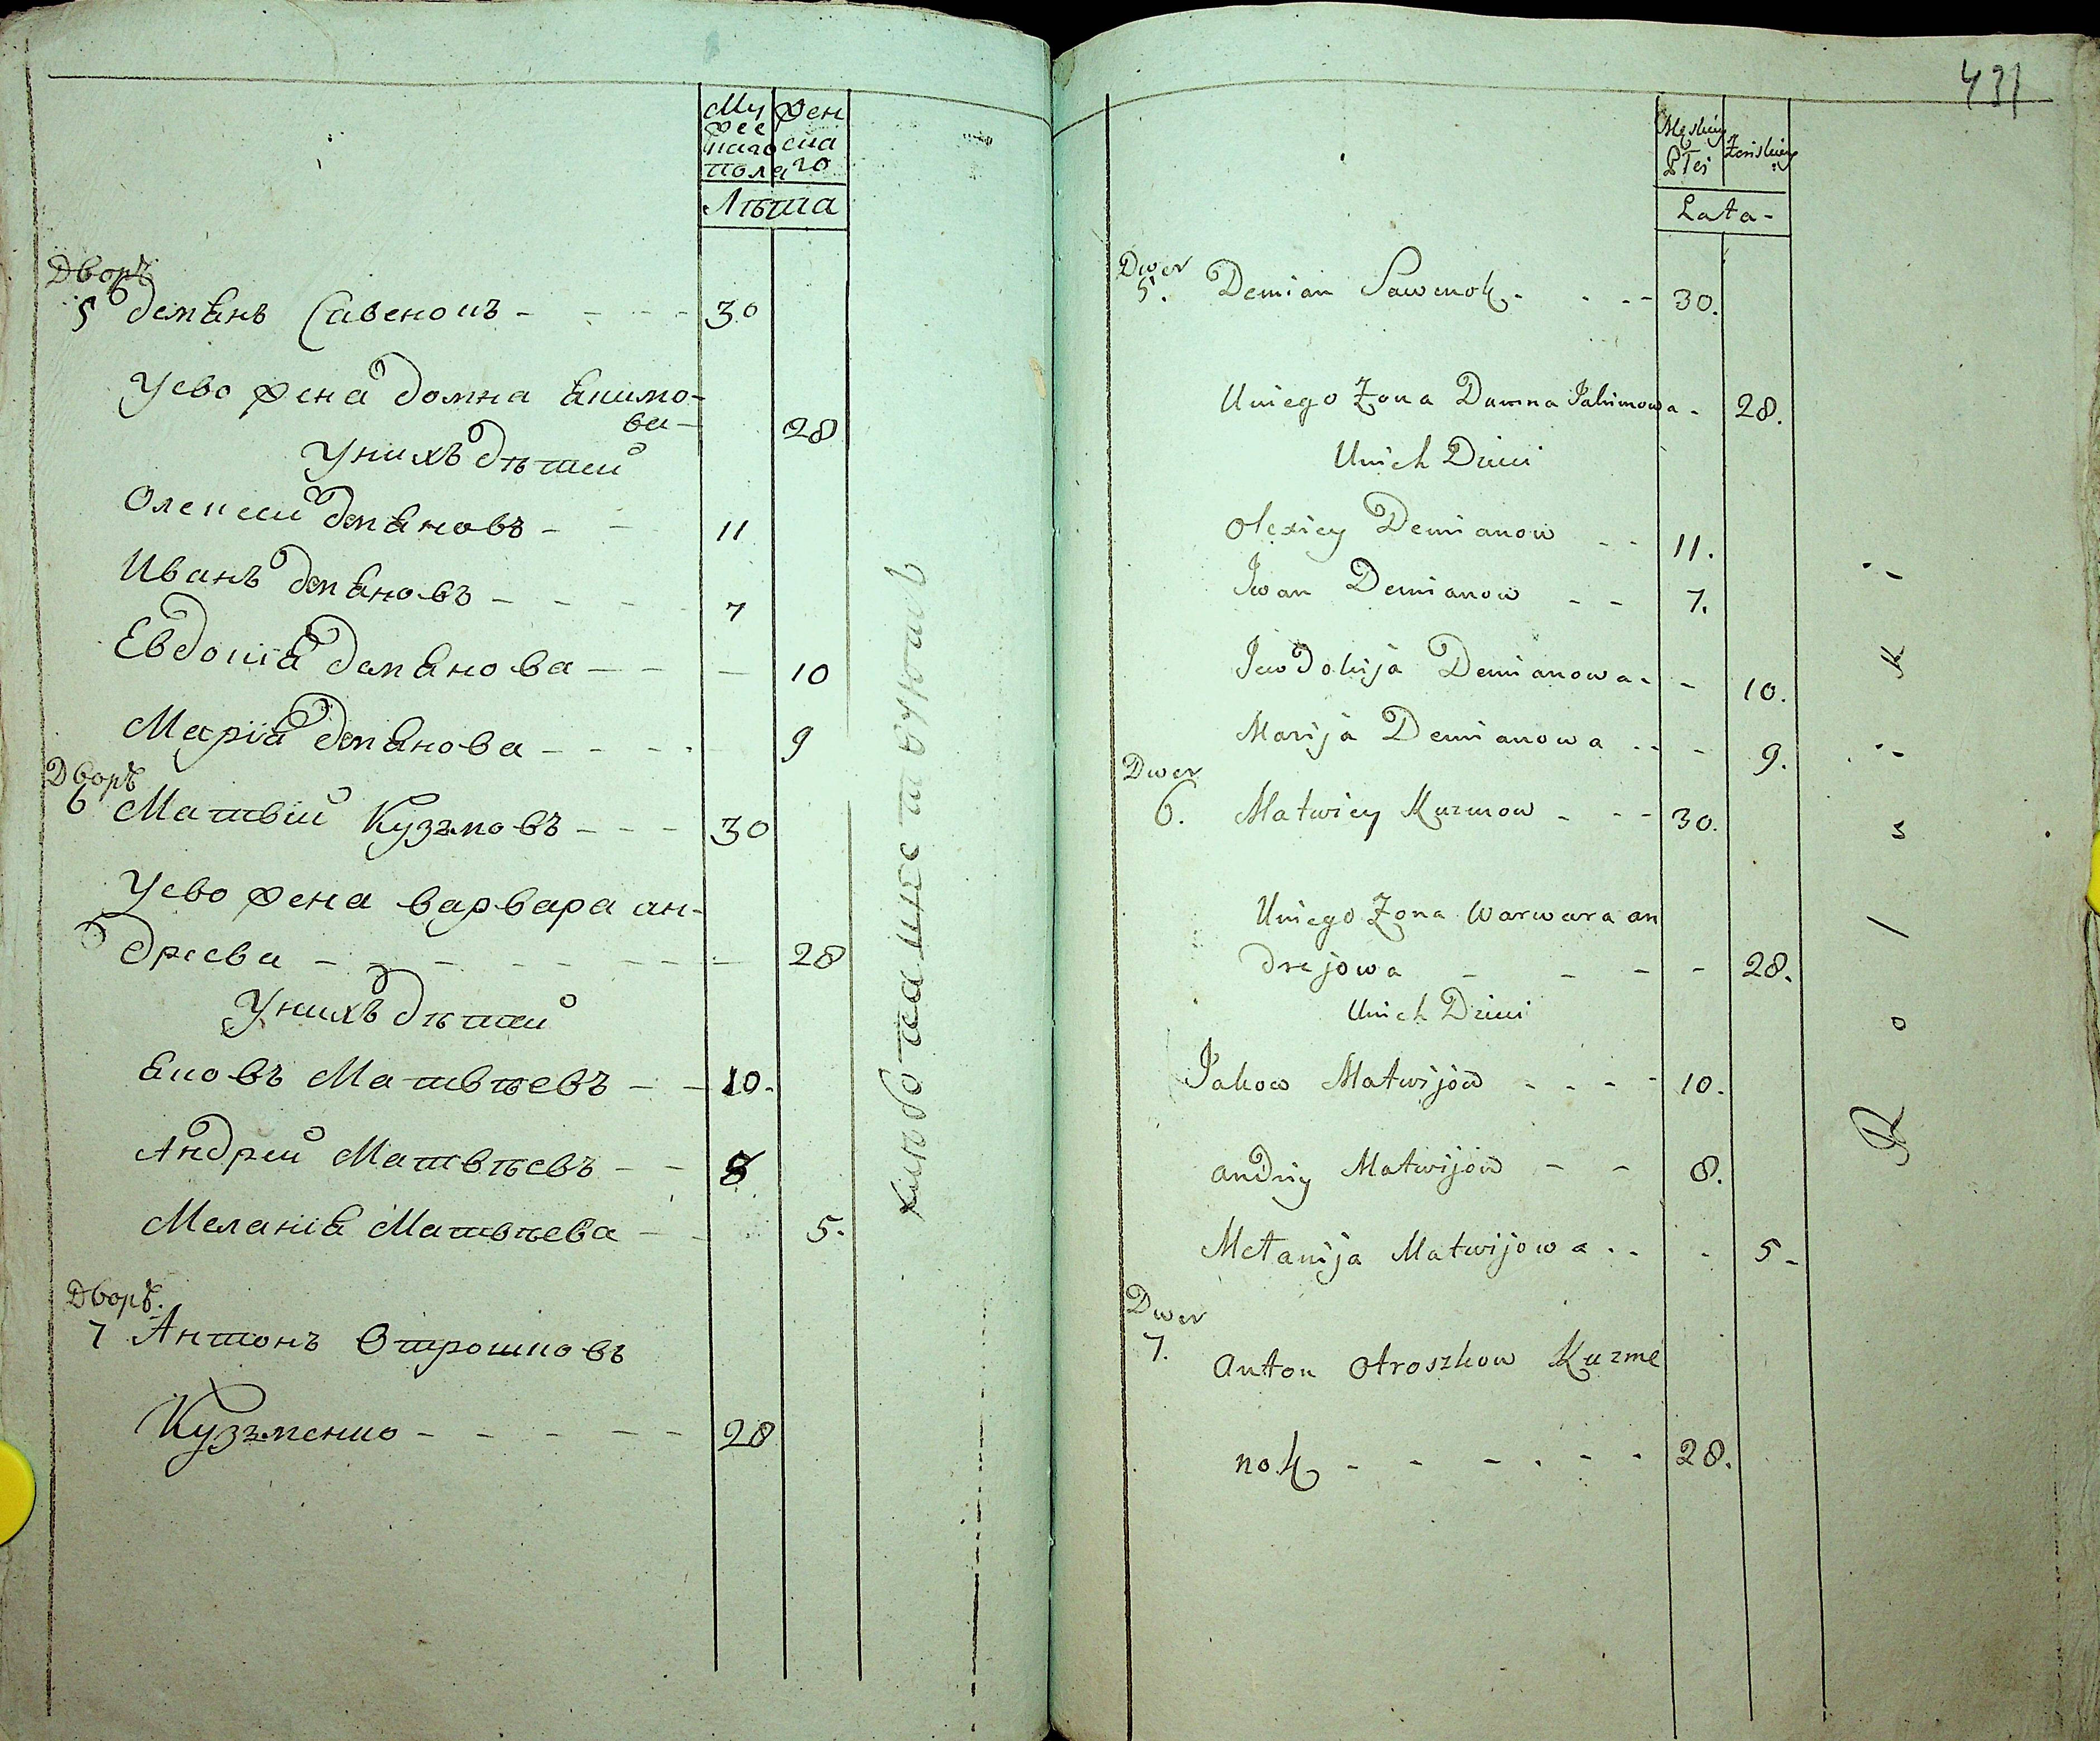 Му
жес
каго
пола
Жен
ска
го
Лѣта
Дворъ
5 Демянъ Савенокъ - - - - 30
У ево жена Домна Якимо-
ва - 28
У нихъ дѣтей
Олексей Демяновъ - - 11
Иванъ Демяновъ - - - - 7
Евдокія Демянова - - - 10
Марія Демянова - - - - 9
Дворъ
6 Матвій Кузмовъ - - - 30
У ево жена Варвара Ан-
дреева - - - - - - - - 28
У нихъ дѣтей
Яковъ Матвѣевъ - - 10.
Андрей Матвѣевъ - - 8
Меланія Матвѣева - - 5.
Дворъ.
7 Антонъ Отрошковъ
Кузменко - - - - - 28
431
Męskiey
Płci
Żeńskiey
Lata -
Dwor
5. Demian Sawenok - - - - 30.
U niego Żona Dumna Jakimowa - 28.
U nich Dzieci
Olexiey Demianow - - 11.
Iwan Demianow - - 7.
Jewdokija Demianowa - - 10.
Marija Demianowa - - - 9.
Dwor
6. Matwiey Kuzmow - - - 30.
U niego Żona Warwara an
drejowa - - - - 28.
U nich Dzieci
Jakow Matwijow - - - - 10.
andriy Matwijow - - 8.
Mełanija Matwijowa - - - 5 -
Dwor
7. Anton Otroszkow Kuzme
nok - - - - - - 28.